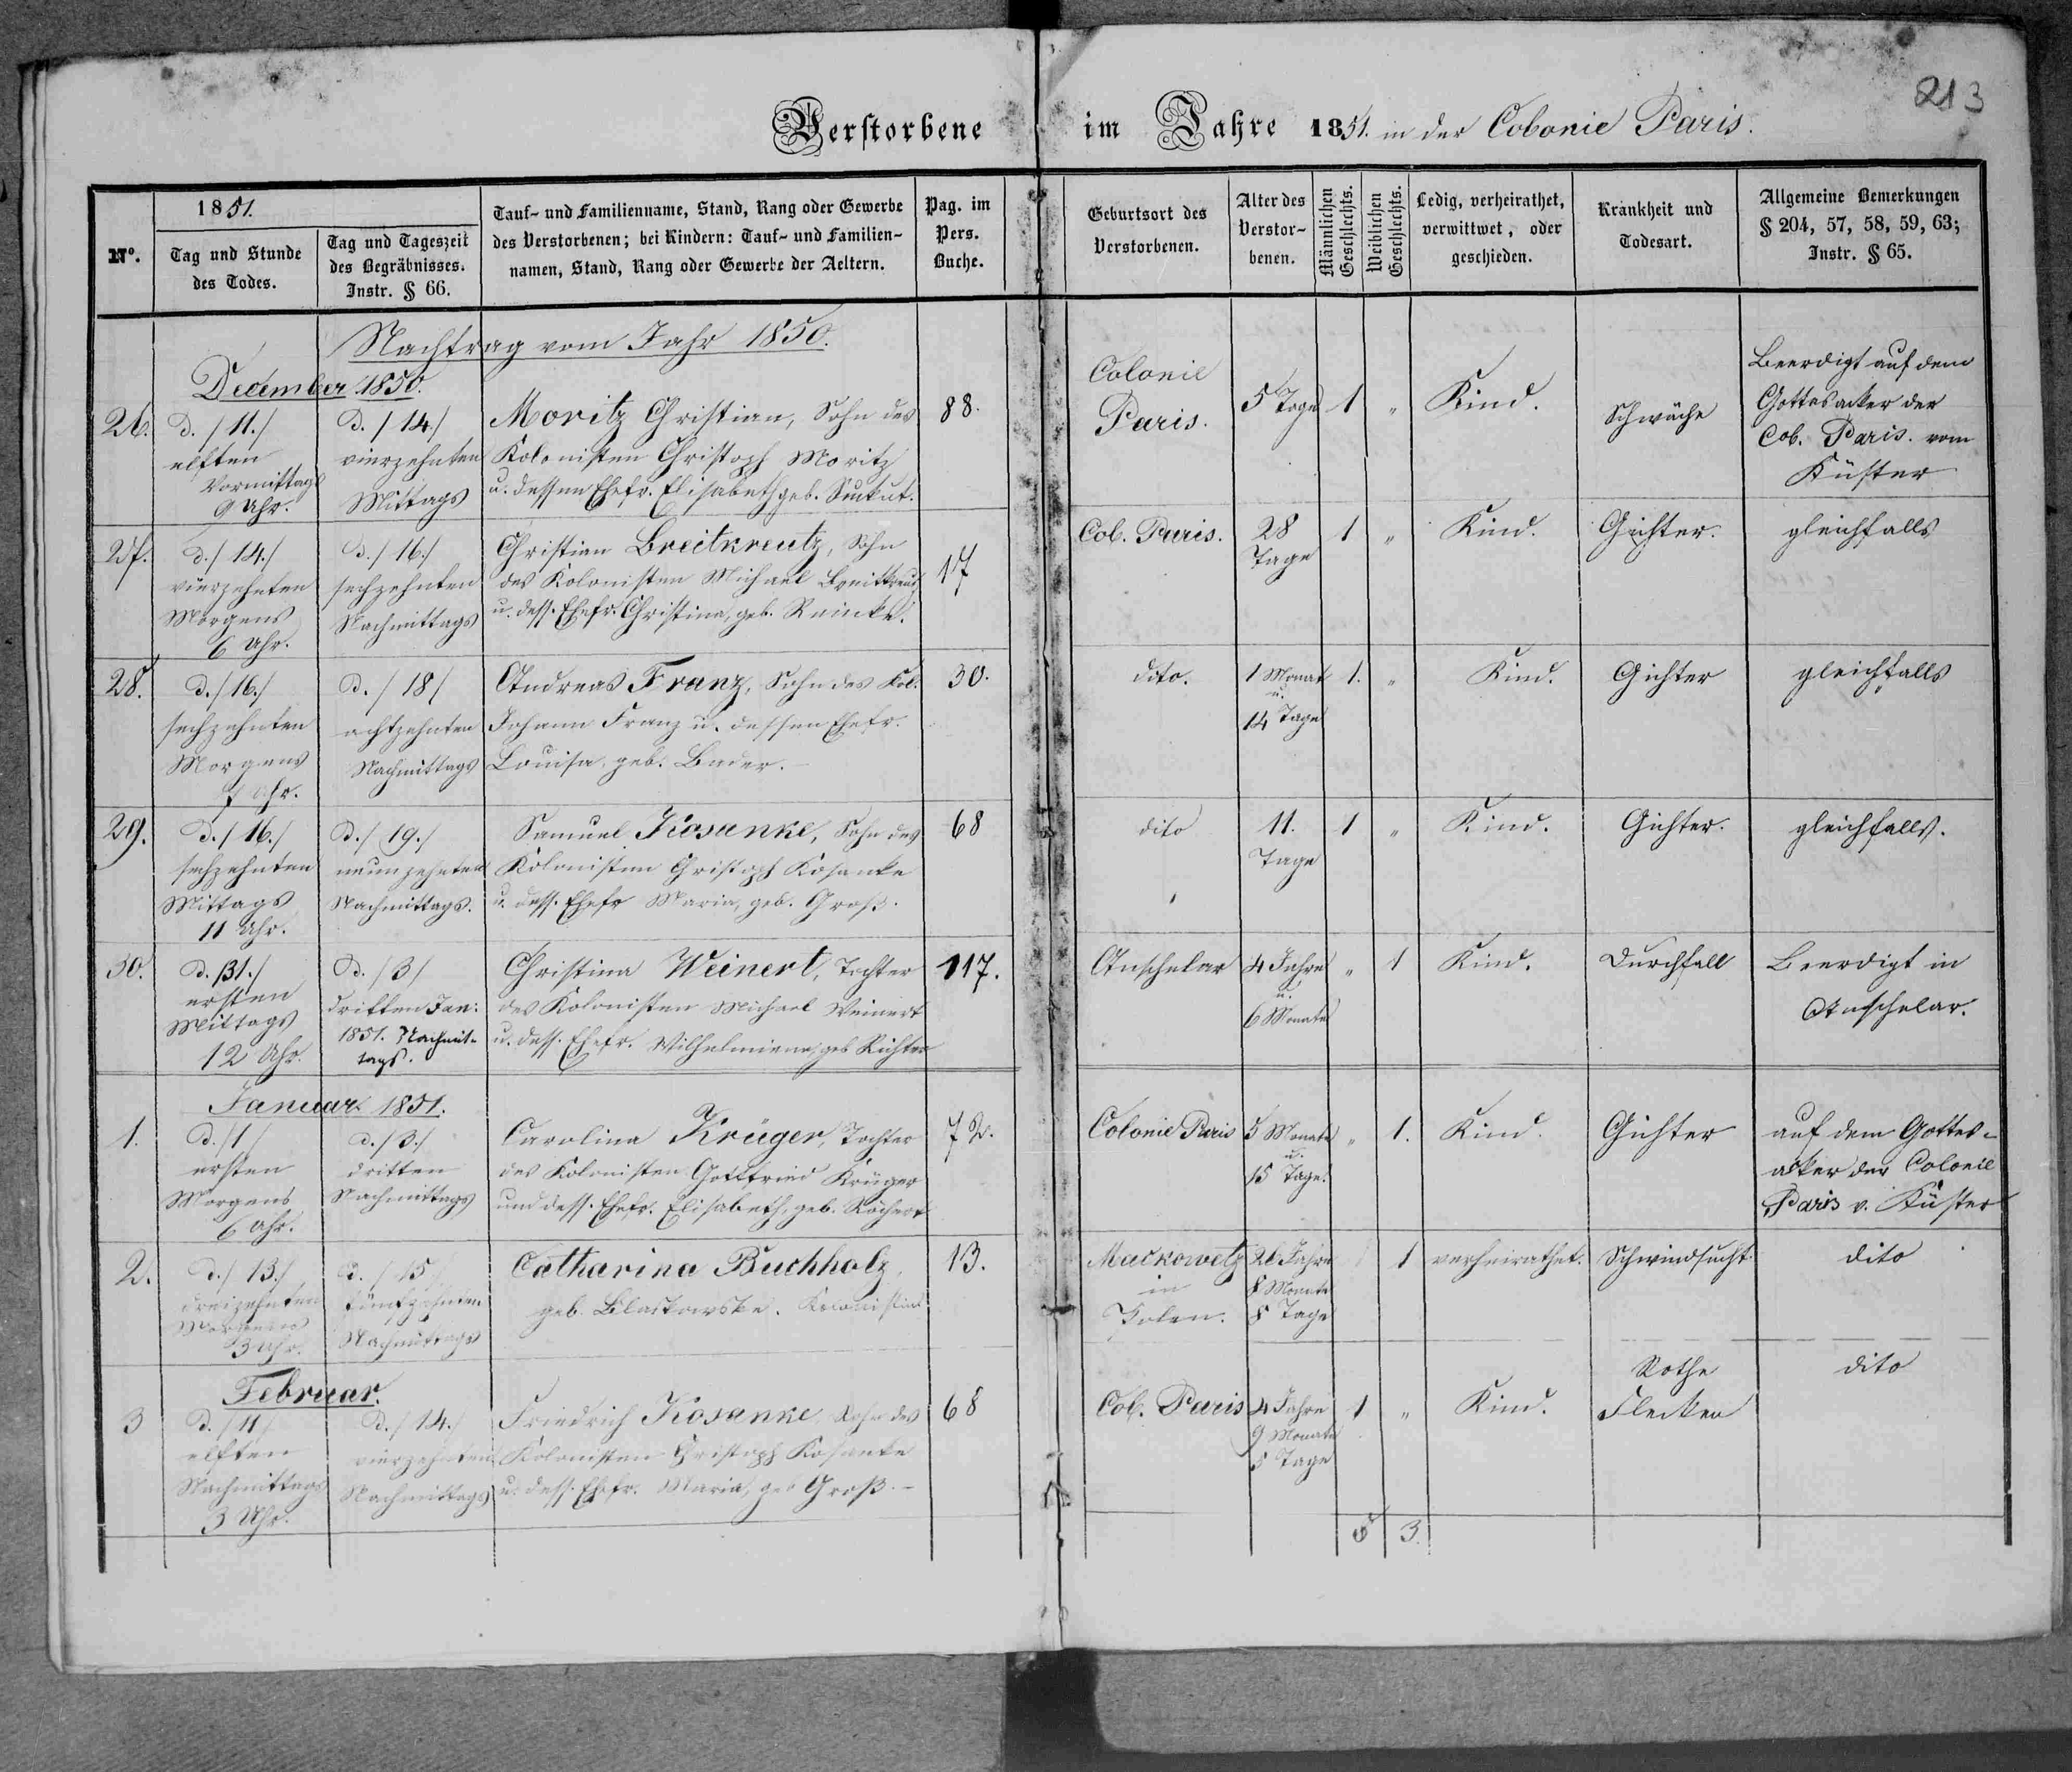 213
Verstorbene im Jahre 1851. in der Colonie Paris.
No.
1851.
Tag und Stunde
des Todes.
Tag und Tageszeit
des Begräbnisses.
Instr. § 66.
Tauf- und Familienname, Stand, Rang oder Gewerbe
des Verstorbenen; bei Kindern: Tauf- und Familien-
namen, Stand, Rang oder Gewerbe der Aeltern.
Pag. im
Pers.
Buche.
Geburtsort des
Verstorbenen.
Alter des
Verstor-
benen.
Männlichen
Geschlechts.
Weiblichen
Geschlechts.
Ledig, verheirathet,
verwittwet, oder
geschieden.
Krankheit und
Todesart.
Allgemeine Bemerkungen
§ 204, 57, 58, 59, 63;
Instr. § 65.
Nachtrag vom Jahr 1850.
December 1850.
26.
d. /11./
elften
Vormittags
9 Uhr.
d. /14./
vierzehnten
Mittags
Moritz Christian, Sohn des
Kolonisten Christoph Moritz
u. dessen Ehefr. Elisabeth geb.
88.
Colonie
Paris.
5 Tage
1
"
Kind.
Schwäche
Beerdigt auf dem
Gottesacker der
Col. Paris. vom
Küster
27.
d. /14./
vierzehnten
Morgens
6 Uhr.
d. /16./
sechzehnten
Nachmittags
Christian Breitkreutz, Sohn
des Kolonisten Michael Breitkreutz
u. dess. Ehefr. Christina, geb. Reincke.
17
Col. Paris.
28
Tage
1
"
Kind.
Gichter.
gleichfalls
28.
d. /16./
sechzehnten
Morgens
7 Uhr.
d. /18/
achtzehnten
Nachmittags
Andreas Franz, Sohn des Kol.
Johann Franz u. dessen Ehefr.
Louisa geb. Bader.
30.
dito.
1 Monat
u.
14 Tage
1.
"
Kind.
Gichter
gleichfalls
29.
d. /16./
sechzehnten
Mittags
11 Uhr.
d. /19./
neunzehnten
Nachmittags.
Samuel Kosanke, Sohn des
Kolonisten Christoph Kosanke
u. dess. Ehefr Maria, geb. Groß.
68
dito
11.
Tage
1
"
Kind.
Gichter.
gleichfalls.
30.
d. /31./
ersten
Mittags
12 Uhr.
d. /3/
dritten Jan:
1851. Nachmit-
tags.
Christina Weinert, Tochter
des Kolonisten Michael Weinert
u. dess. Ehefr. Wilhelmiene, geb Richter
117.
Anschelar
4 Jahre
u.
6 Monate
"
1
Kind.
Durchfall
Beerdigt in
Anschelar.
Januar 1851.
1.
d. /1/
ersten
Morgens
6 Uhr.
d. /3./
dritten
Nachmittags
Carolina Krüger, Tochter
des Kolonisten Gottfried Krüger
und dess. Ehefr. Elisabeth, geb. Röchert
72.
Colonie Paris
5 Monate
u.
15 Tage.
"
1.
Kind.
Gichter
auf dem Gottes-
acker der Colonie
Paris v. Küster
2.
d. /13./
dreizehnten
Morgens
3 Uhr.
d. /15
fünfzehnten
Nachmittags
Catharina Buchholz,
geb. Blaskowske. Kolonistin
13.
Mackowetz
in
Polen.
26 Jahre
8 Monate
8 Tage
1
verheirathet.
Schwindsucht.
dito
Februar.
3
d. /11/
elften
Nachmittags
3 Uhr.
d. /14./
vierzehnten
Nachmittags
Friedrich Kosanke, Sohn des
Kolonisten Christoph Kosanke
u. dess. Ehefr. Maria, geb Groß.-
68
Col. Paris
4 Jahre
9 Monate
5 Tage
1
"
Kind.
Rothe
Flecken
dito
3.